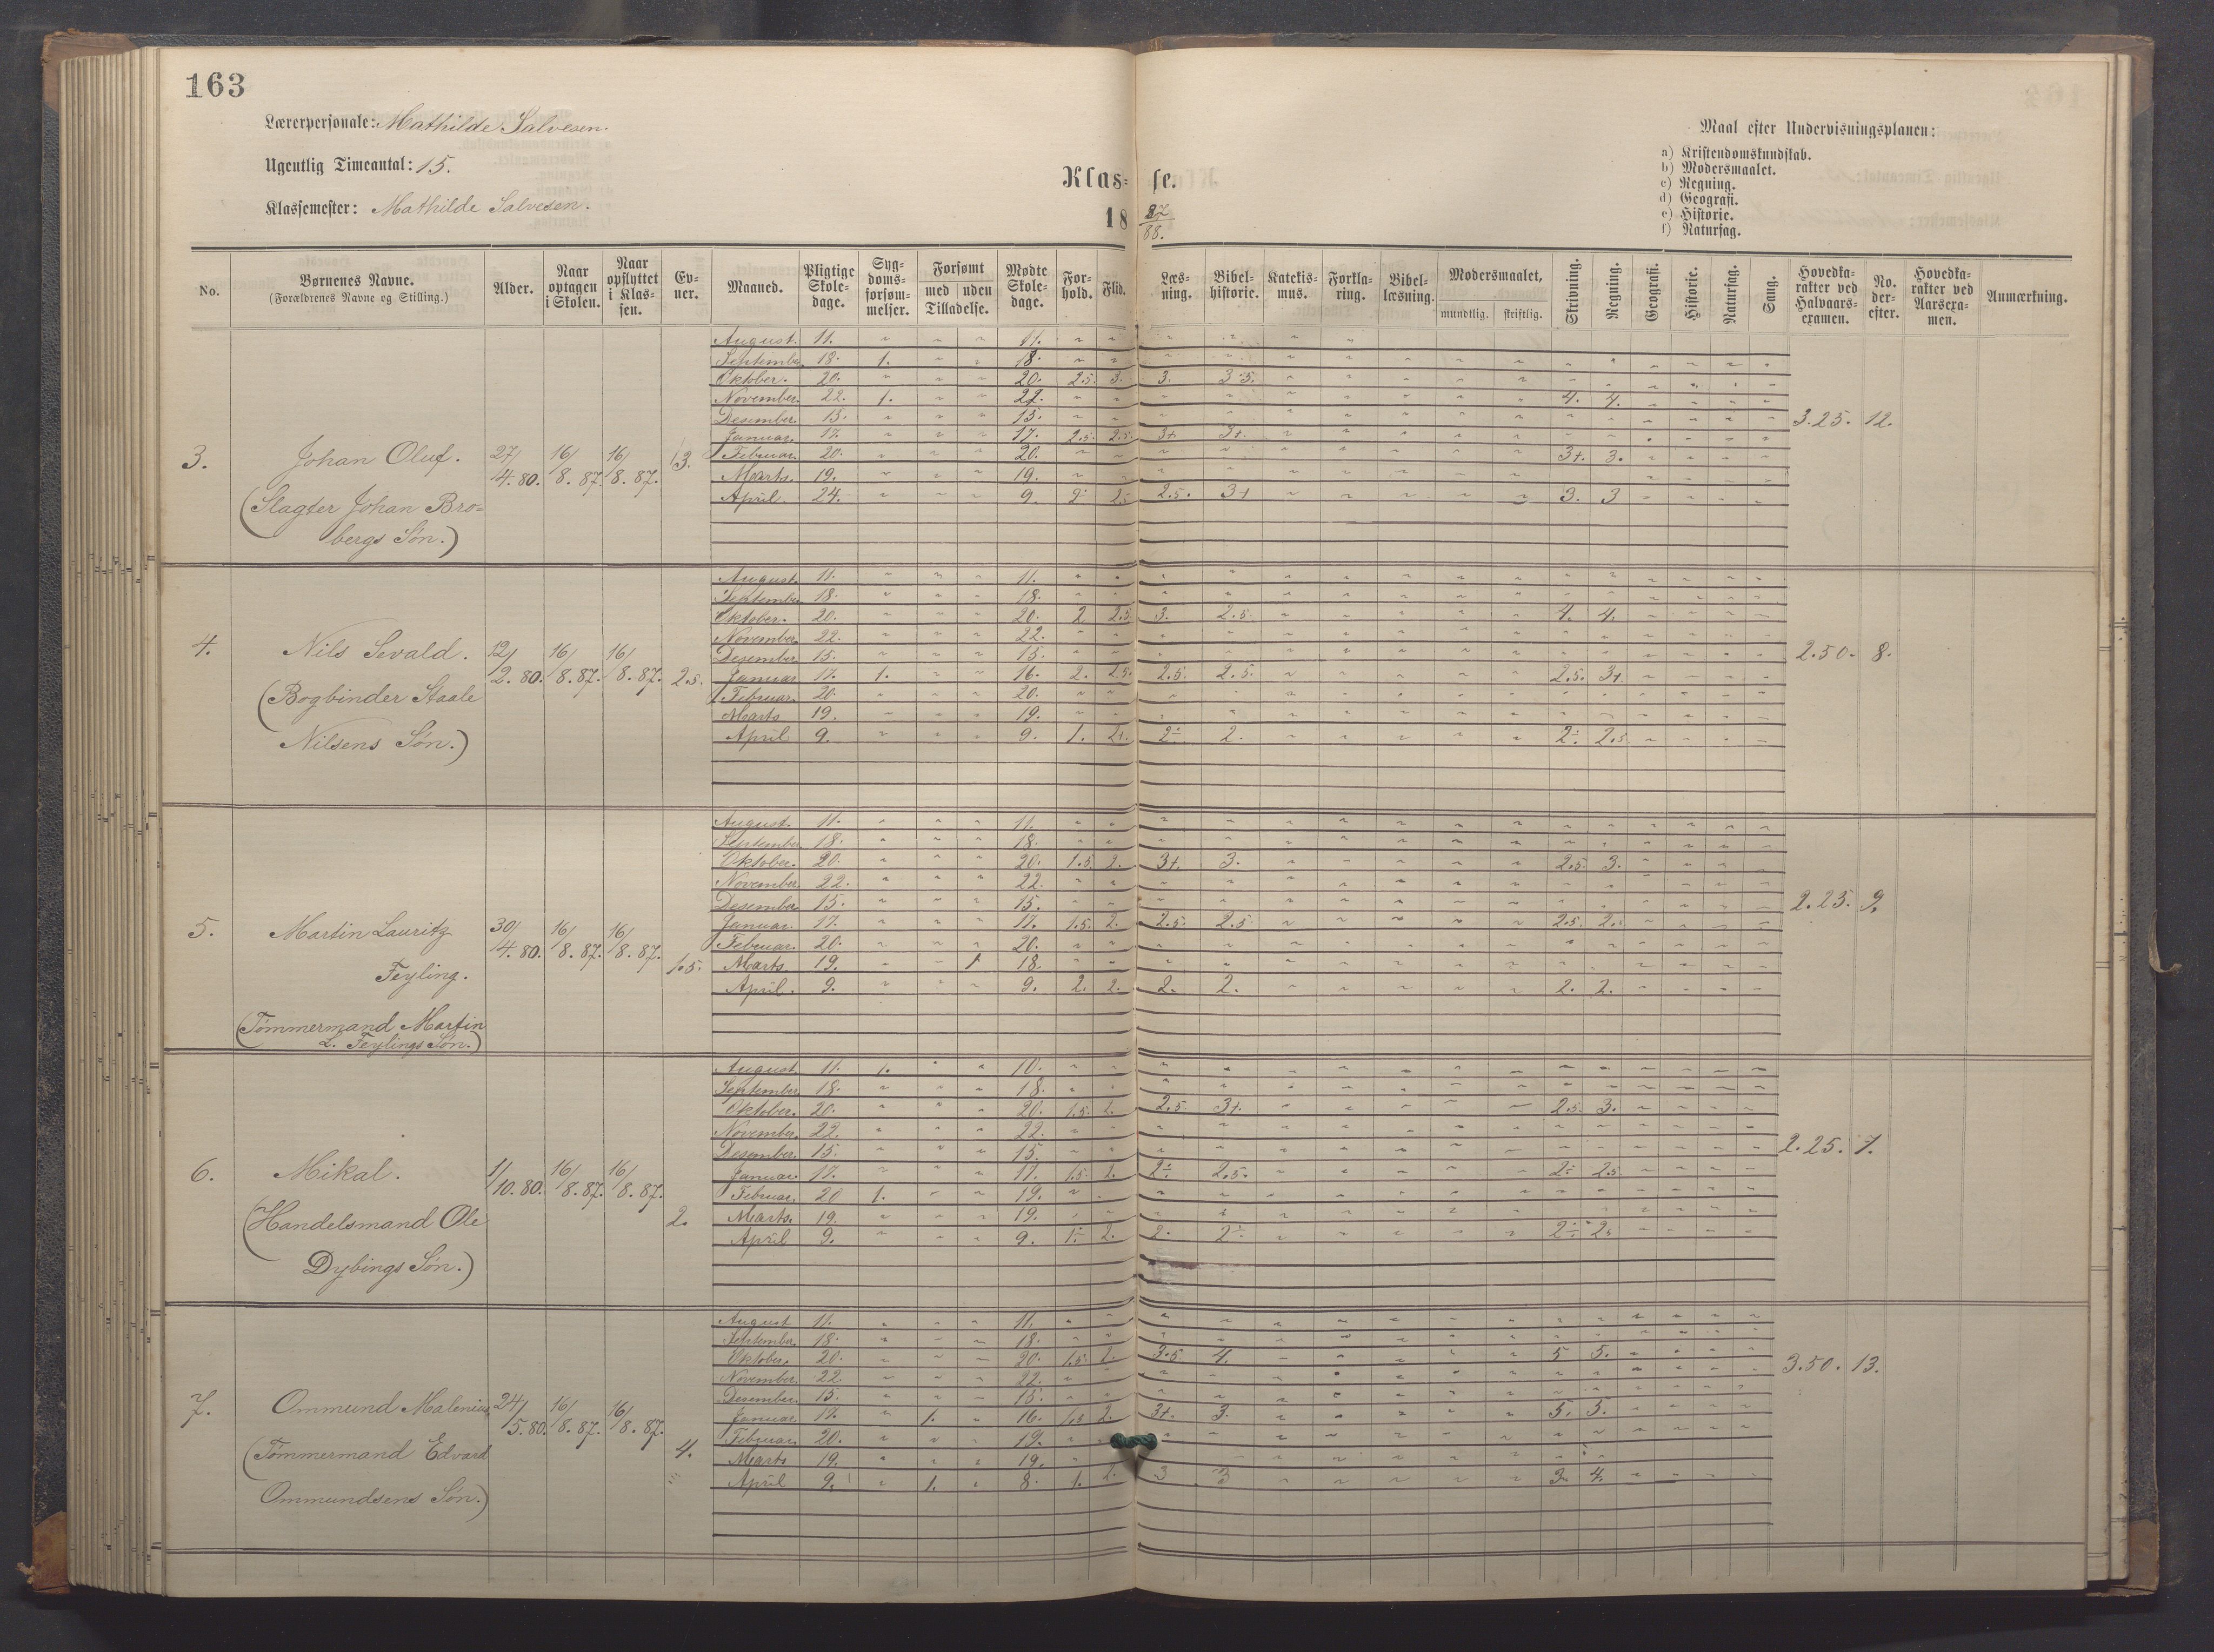 163
Lærerpersonale: Mathilde Salvesen.
Ugentlig Timeantal: 15.
Klassemester: Mathilde Salvesen.
Klas- se.
18 87/88.
Maal efter Undervisningsplanen:
a) Kristendomskundskab.
b) Modersmaalet.
c) Regning.
d) Geografi.
e) Historie.
f) Naturfag.
No. Børnenes Navne. (Forældrenes Navne og Stilling.) Alder. Naar optagen i Skolen. Naar opflyttet i Klassen. Evner. Maaned. Pligtige Skoledage. Sygdomsforsømmelser. Forsømt med uden Tilladelse. Mødte Skoledage. Forhold. Flid. Læsning. Bibelhistorie. Katekismus. Forklaring. Bibellæsning. Modersmaalet, mundtlig. skriftlig. Skrivning. Regning. Geografi. Historie. Naturfag. Sang. Hovedkarakter ved Halvaarsexamen. No. derefter. Hovedkarakter ved Aarsexamen. Anmærkning.
3. Johan Oluf. 27/4.80. 16/8.87. 16/8.87. 3. 3.25. 12.
(Slagter Johan Bro=
bergs Søn.)
August. 11. " " " 11.
September. 18. 1. " " 18.
Oktober. 20. " " " 20. 2.5. 3. 3. 3.5.
November. 22. 1. " " 22. 4. 4.
Desember. 15. " " " 15.
Januar. 17. " " " 17. 2.5. 2.5. 3+. 3+.
Februar. 20. " " " 20. 3+. 3.
Marts. 19. " " " 19.
April. 24. " " " 9. 2 2.5. 3+ 3. 3
4. Nils Sevald. 12/2.80. 16/8.87. 16/8.87. 2.5. 2.50. 8.
(Bogbinder Staale
Nilsens Søn.)
August. 11. " " " 11.
September. 18. " " " 18.
Oktober. 20. " " " 20. 2 2.5 3. 2.5. 4. 4.
November. 22. " " " 22.
Desember. 15. " " " 15.
Januar 17. 1. " " 16. 2. 2.5. 2.5. 2.5. 2.5. 3+
Februar. 20. " " " 20.
Marts 19. " " " 19.
April 9. " " " 9. 1. 2÷ 2. 2÷ 2.5
5. Martin Lauritz 30/4.80. 16/8.87. 16/8.87. 1.5. 2.25. 9.
Feyling.
(Tømmermand Martin
L. Feylings Søn.)
August. 11. " " " 11.
September 18. " " " 18.
Oktober. 20. " " " 20. 1.5. 2. 3+. 3. 2.5. 3.
November 22. " " " 22.
Desember 15. " " " 15.
Januar. 17. " " " 17. 1.5. 2. 2.5. 2.5. 2.5.
Februar. 20. " " " 20.
Marts. 19. " " 1 18.
April. 9. " " " 9. 2. 2. 2. 2. 2. 2.
6. Mikal. 1/10.80. 16/8.87. 16/8.87. 2. 2.25. 7.
(Handelsmand Ole
Dybings Søn.)
August. 11. 1. " " 10.
September 18. " " " 18.
Oktober. 20. " " " 20. 1.5. 2. 2.5. 3+. 2.5. 3.
November. 22. " " " 22.
Desember. 15. " " " 15.
Januar. 17. " " " 17. 1.5. 2. 2÷ 2.5. 2÷ 2.5.
Februar. 20 1. " " 19.
Marts. 19. " " " 19.
April 9. " " " 9. 1÷ 2. 2. 2÷ 2÷ 2.
7. Ommund Malenius 24/5.80. 16/8.87. 16/8.87. 4. 3.50. 13.
(Tømmermand Edvard
Ommundsens Søn.)
August 11. " " " 11.
September. 18. " " " 18.
Oktober. 20. " " " 20. 1.5. 2. 3.5 4. 5 5.
November. 22. " " " 22.
Desember. 15. " " " 15.
Januar 17. " 1. " 16. 1.5 2. 3+. 3. 5. 5.
Februar. 20. " " " 19.
Marts 19. " " " 19.
April 9. " 1. " 8. 1. 2. 3 3 3. 4.